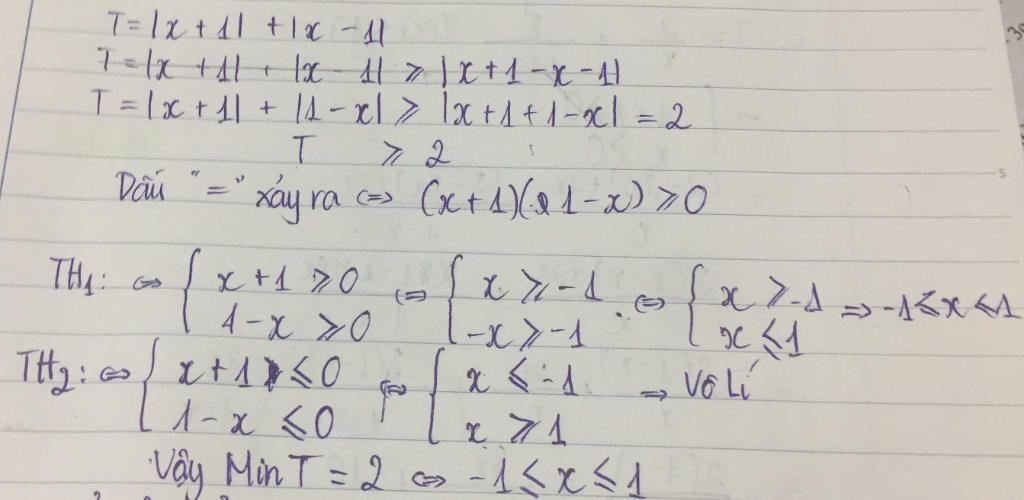 T = |x + 1| + |x - 1|
T = |x + 1| + |x - 1| ⩾ |x + 1 - x - 1|
T = |x + 1| + |1 - x| ⩾ |x + 1 + 1 - x| = 2
T ⩾ 2
Dấu "=" xảy ra ⇔ (x + 1)(1 - x) ⩾ 0
TH1: ⇔ { x + 1 ⩾ 0 ⇔ { x ⩾ -1 ⇔ { x ⩾ -1 ⇒ -1 ⩽ x ⩽ 1
1 - x ⩾ 0 -x ⩾ -1 x ⩽ 1
TH2: ⇔ { x + 1 ⩽ 0 ⇔ { x ⩽ -1 ⇒ Vô Lí
1 - x ⩽ 0 x ⩾ 1
Vậy Min T = 2 ⇔ -1 ⩽ x ⩽ 1